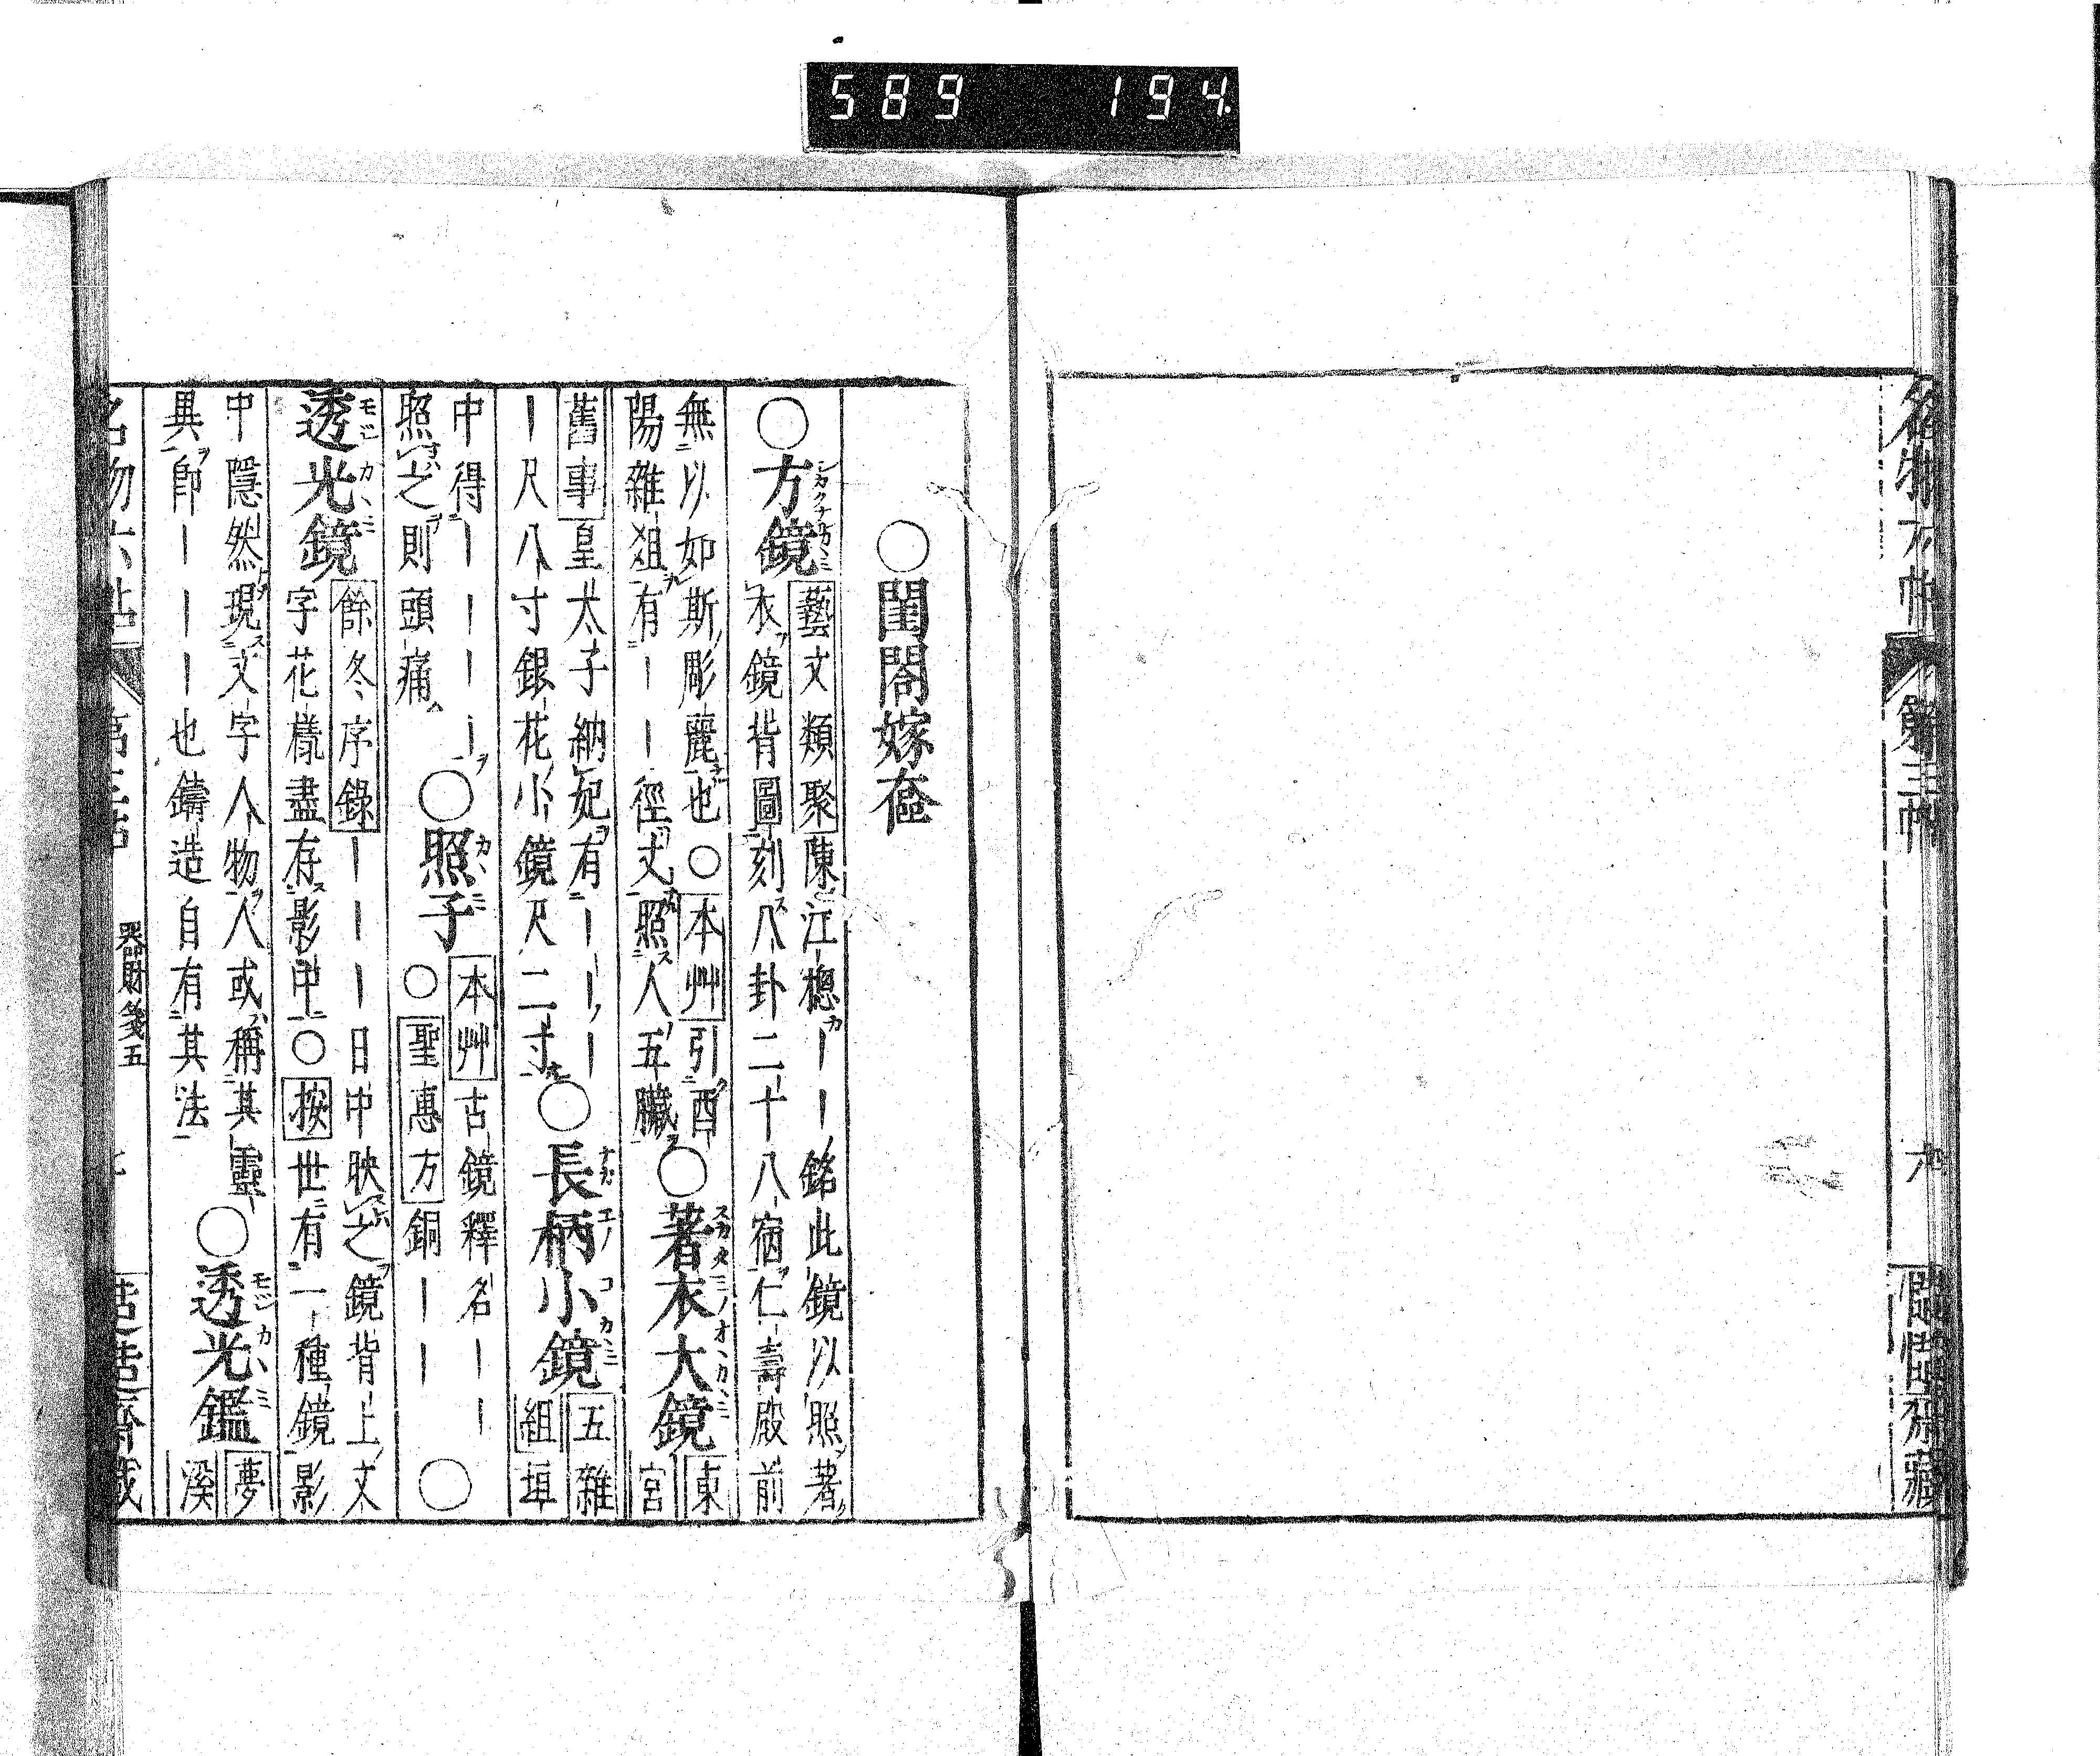 589 194
名物六帖 第三帖 六 藏
○閨閤嫁奩
○方鏡 シカクナカヽミ
藝文類聚陳江總カ——銘此鏡以照著
衣鏡背圖刻八卦二十八宿仁壽殿前
無以如斯彫麗也○本艸引酉
陽雜俎有——徑丈照人五臟
○著衣大鏡 スガタミノオヽカヽミ
東宮
舊事皇太子納妃有———
—尺八寸銀花小鏡尺二寸
○長柄小鏡 ナガエノコカヽミ
五雜
組垣
中得————
照之則頭痛
○照子 カヽミ
本艸古鏡釋名——
○聖惠方銅——
○
透光鏡 モジカヽミ
餘冬序錄———日中映之鏡背上文
字花樣盡存影中○按世有一種鏡影
中隱然現文字人物人或稱其靈
異即———也鑄造自有其法
○透光鑑 モジカヽミ
夢
溪
名物六帖 第三帖 器財箋五